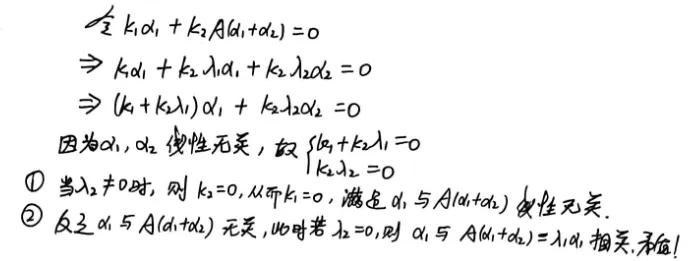 令 k₁α₁ + k₂A(α₁+α₂) = 0
⇒ k₁α₁ + k₂λ₁α₁ + k₂λ₂α₂ = 0
⇒ (k₁+k₂λ₁)α₁ + k₂λ₂α₂ = 0
因为α₁, α₂ 线性无关, 故 {k₁+k₂λ₁=0
k₂λ₂=0
① 当λ₂≠0时, 则 k₂=0, 从而k₁=0, 满足 α₁ 与 A(α₁+α₂) 线性无关.
② 反之 α₁ 与 A(α₁+α₂) 无关, 此时若 λ₂=0, 则 α₁ 与 A(α₁+α₂)=λ₁α₁ 相关, 矛盾!